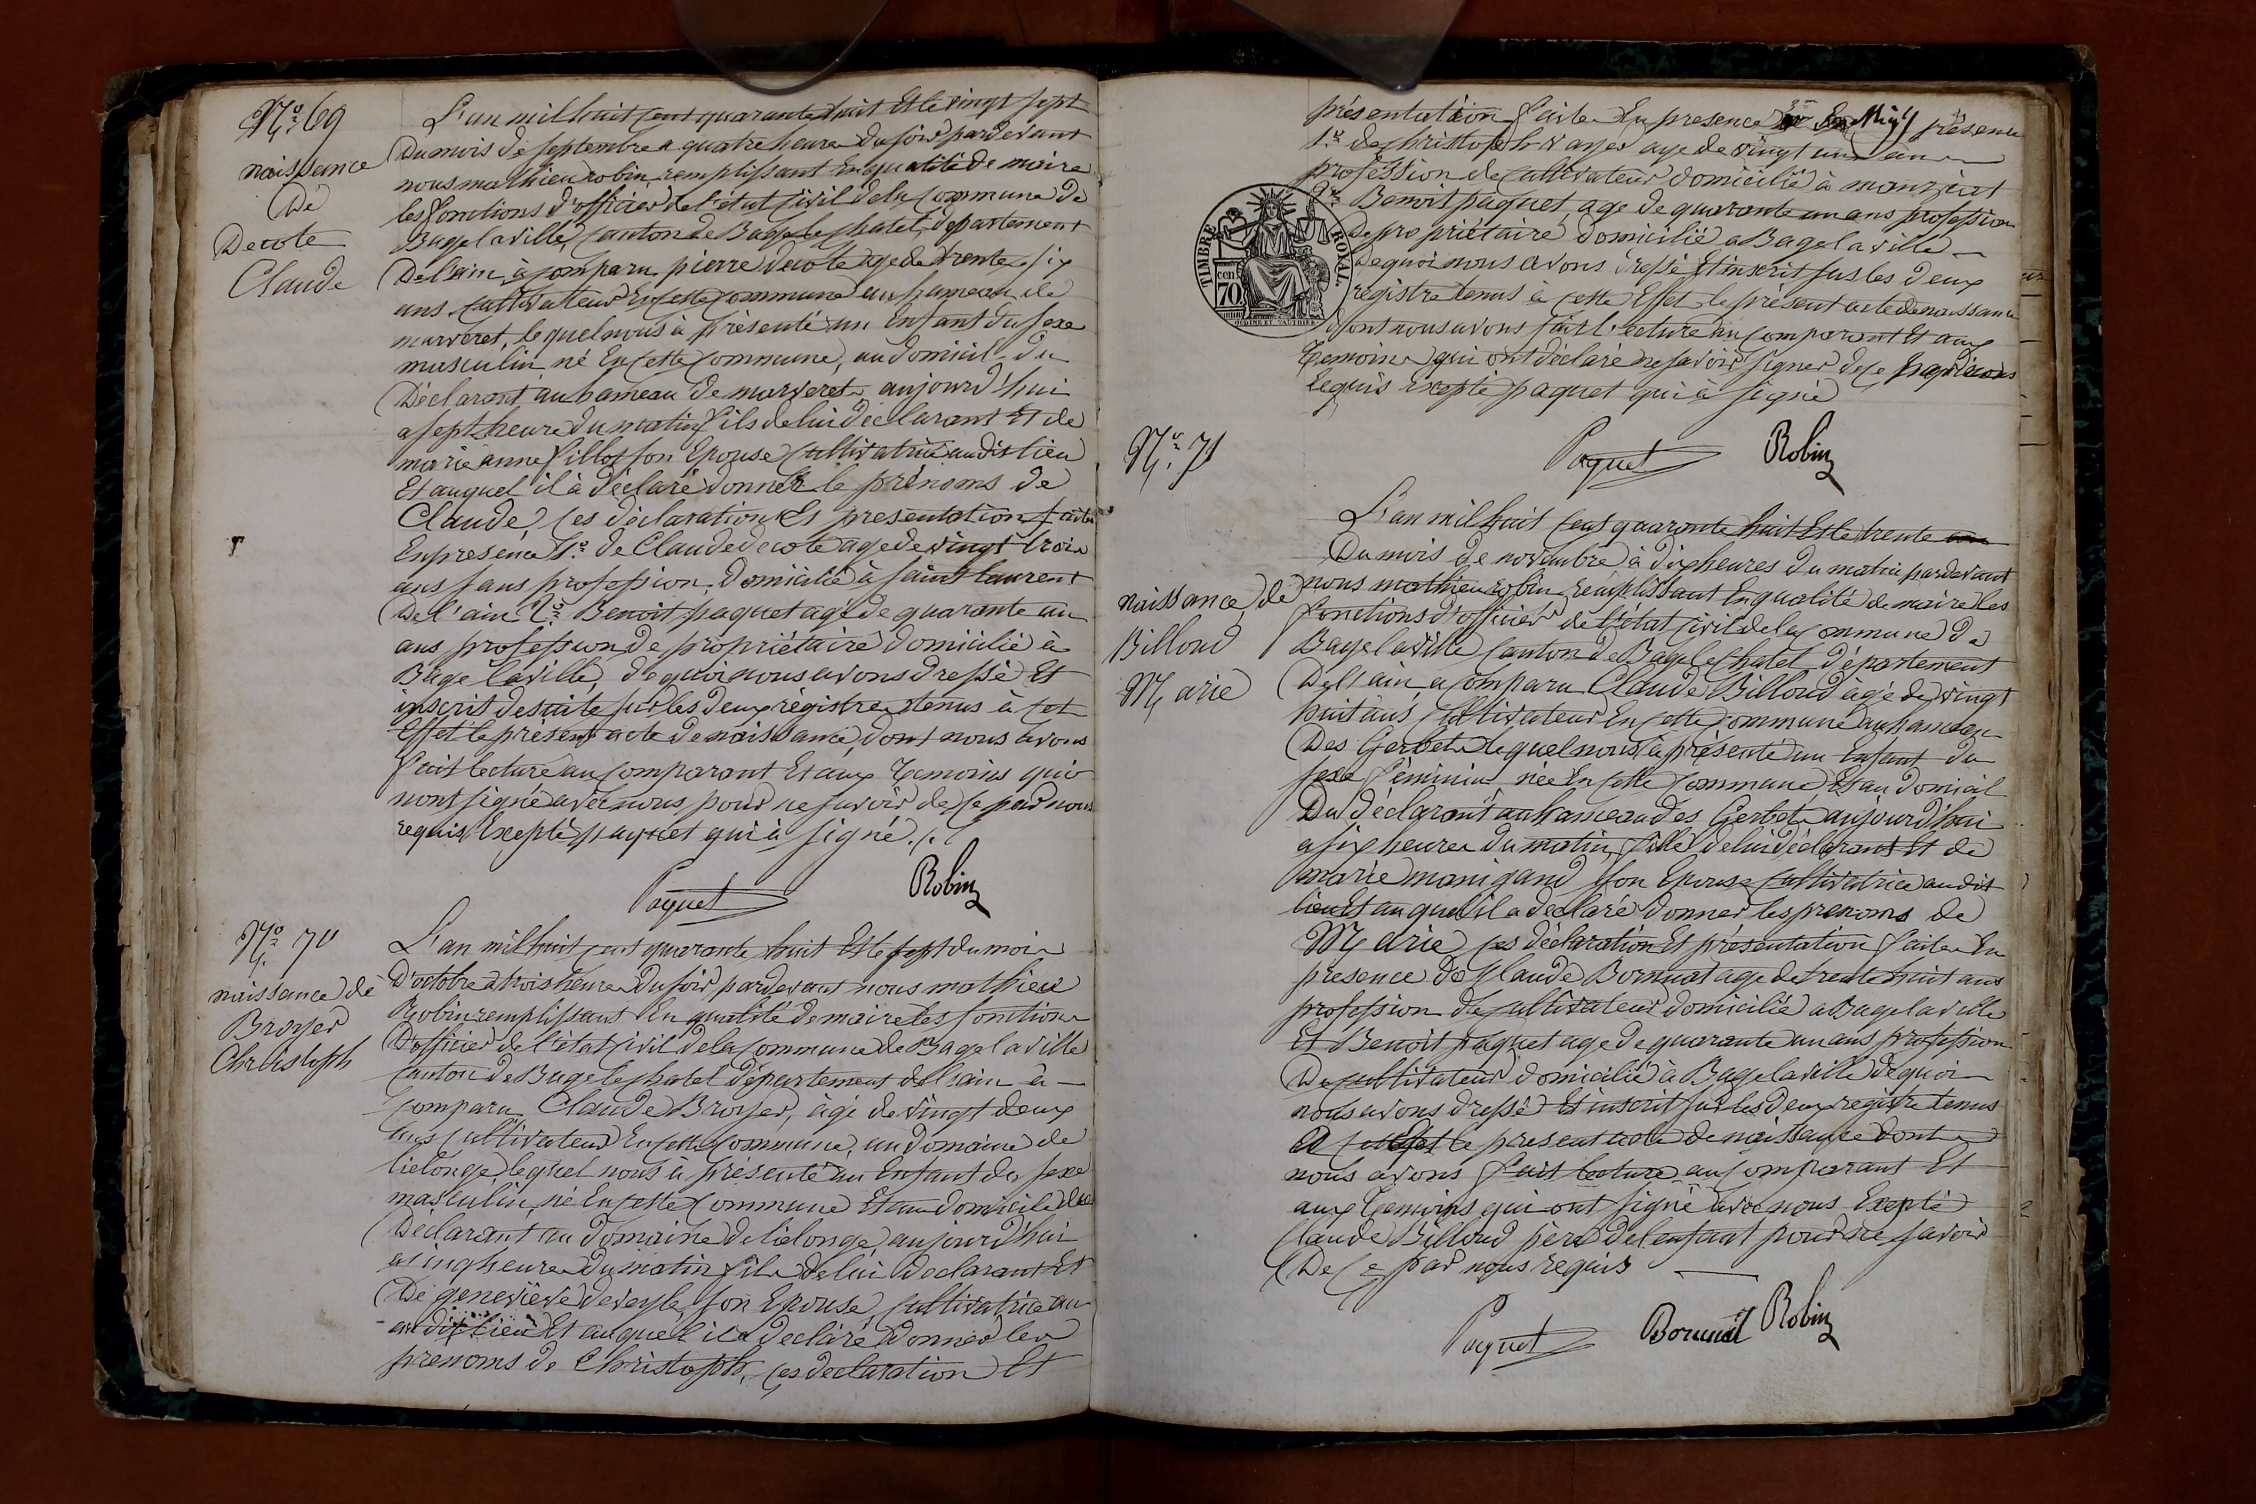 N° 69
naissance
De
Decote
Claude
L'an mil huit cent quarante huit Et le vingt sept
Du mois de septembre a quatre heures du soir par devant
nous mathieu robin remplissant En qualité de maire
les fonctions d'officier de l'état Civil de la Commune de
Bagé la ville, Canton de Bagé le chatel, département
De l'ain, à Comparu pierre decote age de trente six
ans Cultivateur En cette Commune au hameau de
marveret, lequel nous à présenté un Enfant du sexe
masculin né En cette Commune, au domicil du
Déclarant au hameau de marveret, aujourd'hui
a sept heure du matin fils de lui déclarant Et de
marie anne fillot son Epouse Cultivatrice audit lieu
Et auquel il à déclaré donner le prénoms de
Claude, Ces déclaration Et presentation faites
En presence 1° de Claude decote age de vingt trois
ans sans profession, domicilié à saint laurent
De l'ain 2° Benoit paquet agé de quarante un
ans profession de propriétaire domicilié à
Bagé la ville, de quoi nous avons dressé Et
inscrit de suite sur les deux régistres tenus à cet
Effet le présent acte de naissance, dont nous avons
fait lecture au Comparant Et aux temoins qui
nont signé avec nous pour ne savoir de ce par nous
requis Excepté paquet qui à signé
Paquet Robin
N° 70
naissance de
Broyer
Christoph
L'an mil huit cent quarante huit Et le sept du mois
D'octobre à trois heures du soir, par devant nous mathieu
Robin remplissant En qualité de maire les fonctions
D'officier de l'état Civil de la Commune de Bagé la ville
Canton de Bagé le chatel département de l'ain à
Comparu Claude Broyer, âgé de vingt deux
ans Cultivateur En cette Commune, au domaine de
lequel nous à présenté un Enfant du sexe
masculin, né En cette Commune Et au domicile du
Déclarant au Domaine de aujourd'hui
a cinq heures du matin fils de lui Declarant Et
De geneviève son Epouse Cultivatrice au
audit lieu Et auquel il a declaré Donner les
prenoms de Christoph, ces declaration Et
présentation faites En presence
1° de christoph Broyer age de vingt un ans
profession de Cultivateur domicilié à manziat
2° Benoit paquet age de quarante un ans profession
De propriétaire domicilié a Bagé la ville
De quoi nous avons dressé Et inscrit sur les deux
registre tenus à cette Effet le présent acte de naissance
dont nous avons fait lecture au Comparant Et aux
temoins qui ont déclaré ne savoir signer de ce par nous
requis excepté paquet qui à signé
TIMBRE ROYAL
70
Paquet Robin
N° 71
naissance de
Billoud
Marie
L'an mil huit cent quarante huit Et le trente
Du mois de novembre à dix heures du matin par devant
nous mathieu robin remplissant En qualité de maire les
fonctions d'officier de l'état Civil de la Commune de
Bagé la ville Canton de Bagé le chatel, département
De l'ain, a Comparu Claude Billoud âgé de vingt
huit ans Cultivateur En cette Commune au hameau
Des Gerbet lequel nous a présenté un Enfant du
sexe féminin née En cette Commune Et au domicil
Du déclarant au hameau des Gerbet aujourd'hui
a six heures du matin, fille de lui déclarant Et de
marie manigand son Epouse Cultivatrice audit
lieu Et auquel il a declaré donner les prenoms de
Marie, ces déclaration Et présentation faites En
presence de Claude Bornuat age de trente huit ans
profession de Cultivateur domicilié a Bagé la ville
Et Benoit paquet age de quarante un ans profession
De Cultivateur domicilié à Bagé la ville de quoi
nous avons dressé Et inscrit sur les deux registre tenus
A cet Effet le present acte de naissance dont
nous avons fait lecture au Comparant Et
aux temoins qui ont signé avec nous Excepté
Claude Billoud père de lenfant pour ne savoir
De ce par nous requis
Paquet Robin